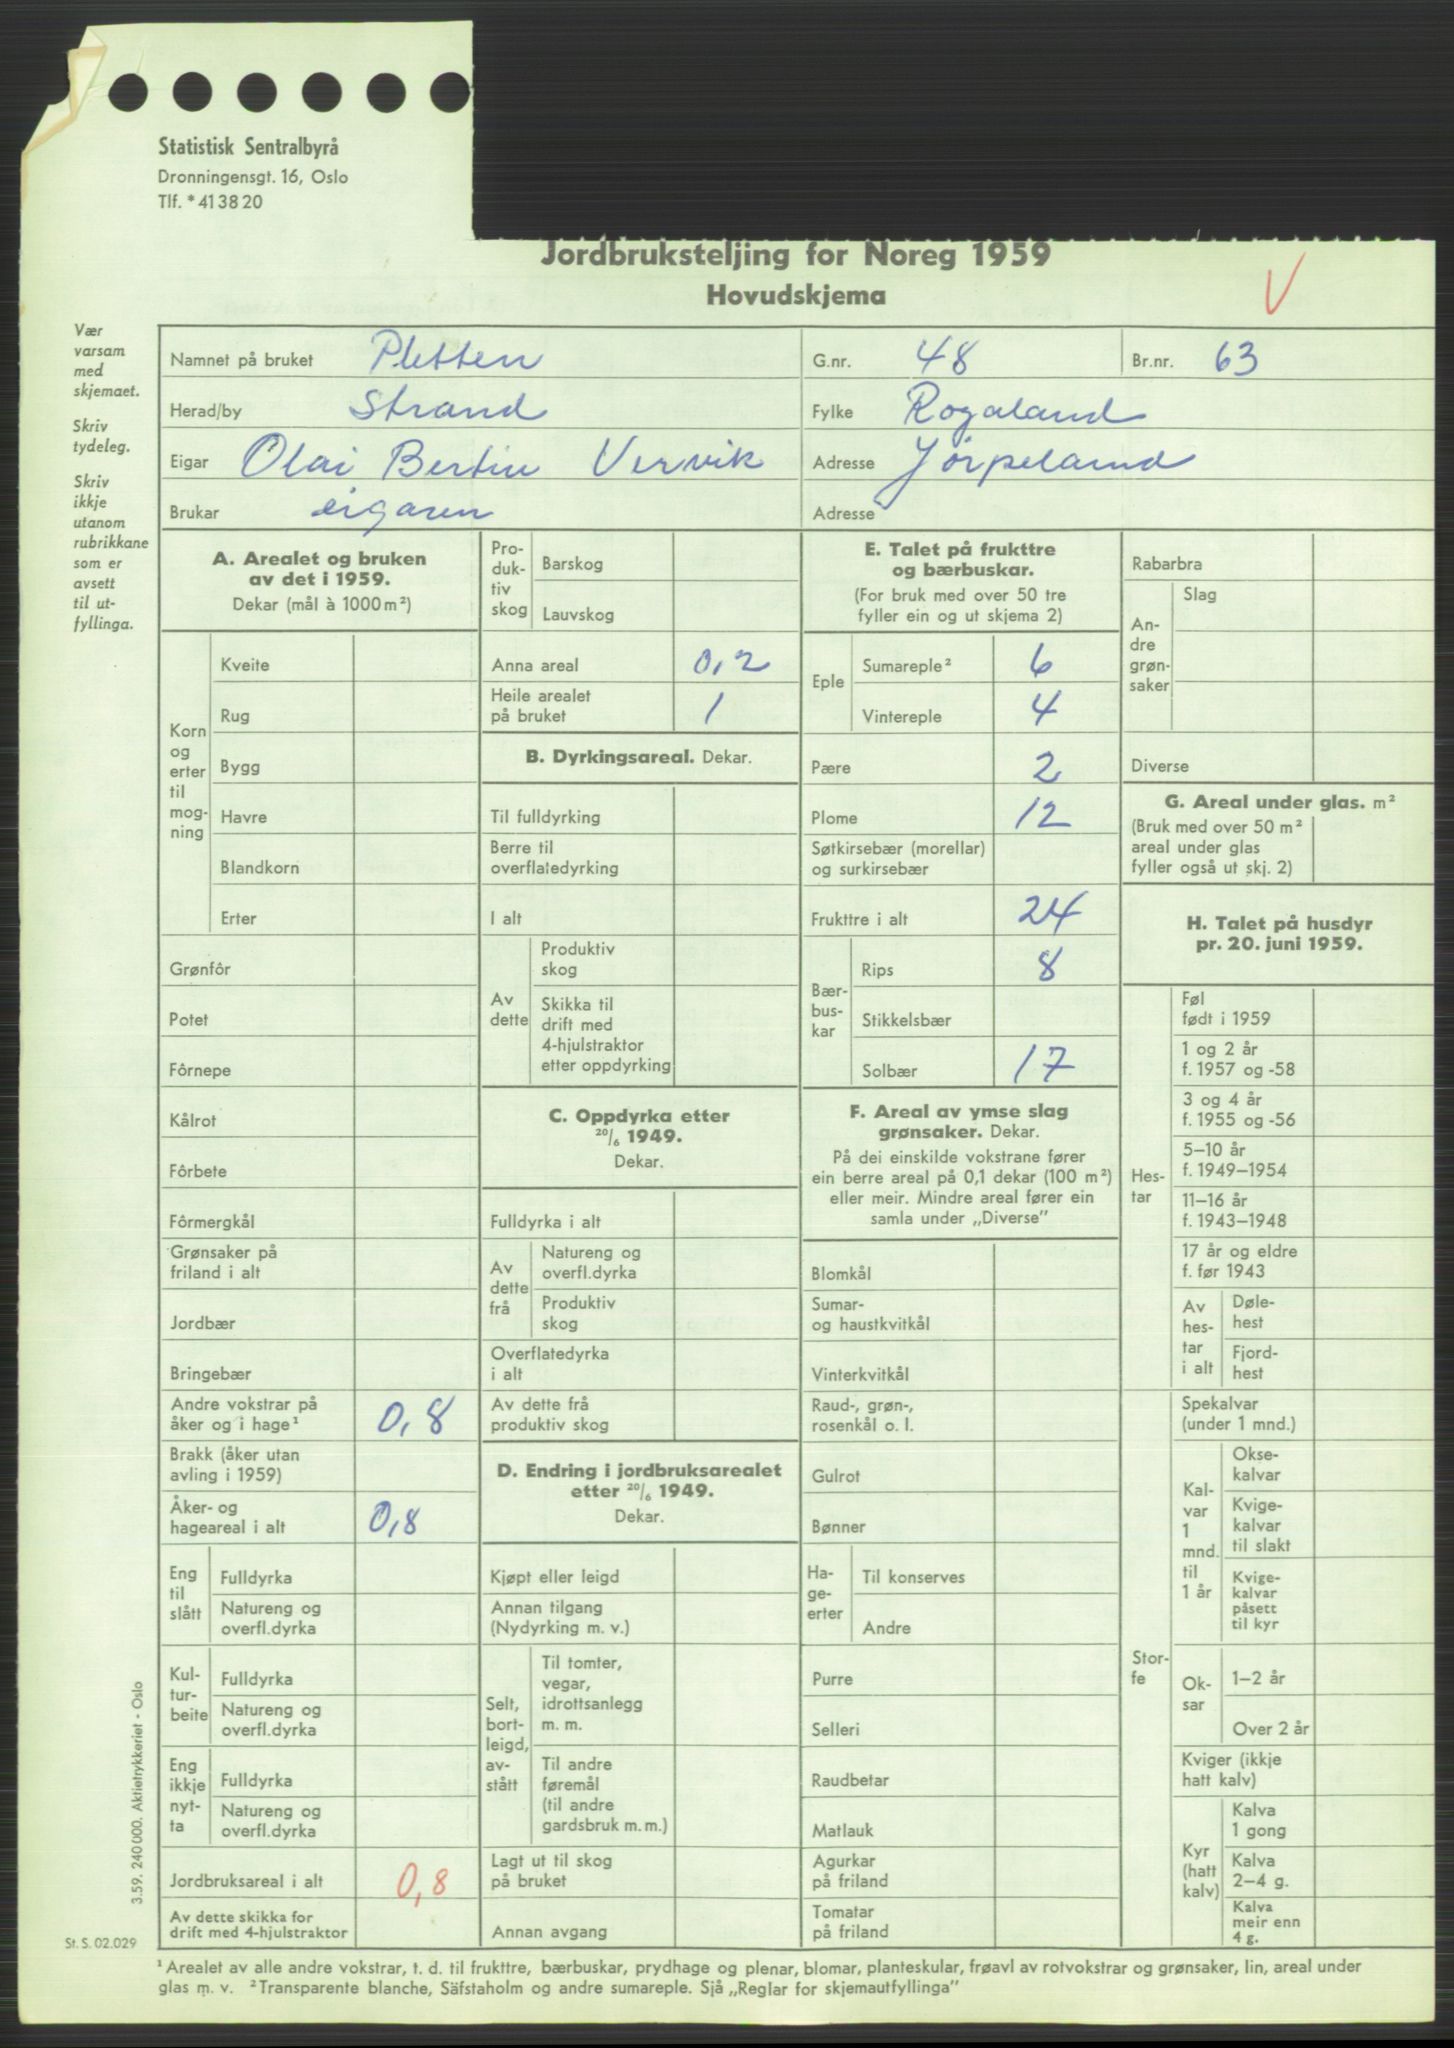 Statistisk Sentralbyrå
Dronningensgt. 16, Oslo
Tlf. *41 38 20
Jordbruksteljing for Noreg 1959
Hovudskjema
V
Vær
varsam
med
skjemaet.
Skriv
tydeleg.
Skriv
ikkje
utanom
rubrikkane
som er
avsett
til ut-
fyllinga.
Namnet på bruket Pletten G.nr. 48 Br.nr. 63
Herad/by Strand Fylke Rogaland
Eigar Olai Bertin Vervik Adresse Jørpeland
Brukar eigaren Adresse
A. Arealet og bruken
av det i 1959.
Dekar (mål à 1000 m²)
Korn
og
erter
til
mog-
ning
Kveite
Rug
Bygg
Havre
Blandkorn
Erter
Grønfôr
Potet
Fôrnepe
Kålrot
Fôrbete
Fôrmergkål
Grønsaker på
friland i alt
Jordbær
Bringebær
Andre vokstrar på
åker og i hage¹ 0,8
Brakk (åker utan
avling i 1959)
Åker- og
hageareal i alt 0,8
Eng
til
slått
Fulldyrka
Natureng og
overfl.dyrka
Kul-
tur-
beite
Fulldyrka
Natureng og
overfl.dyrka
Eng
ikkje
nyt-
ta
Fulldyrka
Natureng og
overfl.dyrka
Jordbruksareal i alt 0,8
Av dette skikka for
drift med 4-hjulstraktor
Pro-
duk-
tiv
skog
Barskog
Lauvskog
Anna areal 0,2
Heile arealet
på bruket 1
B. Dyrkingsareal. Dekar.
Til fulldyrking
Berre til
overflatedyrking
I alt
Av
dette
Produktiv
skog
Skikka til
drift med
4-hjulstraktor
etter oppdyrking
C. Oppdyrka etter
20/6 1949.
Dekar.
Fulldyrka i alt
Av
dette
frå
Natureng og
overfl.dyrka
Produktiv
skog
Overflatedyrka
i alt
Av dette frå
produktiv skog
D. Endring i jordbruksarealet
etter 20/6 1949.
Dekar.
Kjøpt eller leigd
Annan tilgang
(Nydyrking m. v.)
Selt,
bort-
leigd,
av-
stått
Til tomter,
vegar,
idrottsanlegg
m. m.
Til andre
føremål
(til andre
gardsbruk m. m.)
Lagt ut til skog
på bruket
Annan avgang
E. Talet på frukttre
og bærbuskar.
(For bruk med over 50 tre
fyller ein og ut skjema 2)
Eple
Sumareple² 6
Vintereple 4
Pære 2
Plome 12
Søtkirsebær (morellar)
og surkirsebær
Frukttre i alt 24
Bær-
bus-
kar
Rips 8
Stikkelsbær
Solbær 17
F. Areal av ymse slag
grønsaker. Dekar.
På dei einskilde vokstrane fører
ein berre areal på 0,1 dekar (100 m²)
eller meir. Mindre areal fører ein
samla under „Diverse”
Blomkål
Sumar-
og haustkvitkål
Vinterkvitkål
Raud-, grøn-,
rosenkål o. l.
Gulrot
Bønner
Ha-
ge-
erter
Til konserves
Andre
Purre
Selleri
Raudbetar
Matlauk
Agurkar
på friland
Tomatar
på friland
Rabarbra
An-
dre
grøn-
saker
Slag
Diverse
G. Areal under glas. m²
(Bruk med over 50 m²
areal under glas
fyller også ut skj. 2)
H. Talet på husdyr
pr. 20. juni 1959.
Hes-
tar
Føl
født i 1959
1 og 2 år
f. 1957 og -58
3 og 4 år
f. 1955 og -56
5–10 år
f. 1949–1954
11–16 år
f. 1943–1948
17 år og eldre
f. før 1943
Av
hes-
tar
i alt
Døle-
hest
Fjord-
hest
Stor-
fe
Spekalvar
(under 1 mnd.)
Kal-
var
1
mnd.
til
1 år
Okse-
kalvar
Kvige-
kalvar
til slakt
Kvige-
kalvar
påsett
til kyr
Ok-
sar
1–2 år
Over 2 år
Kviger (ikkje
hatt kalv)
Kyr
(hatt
kalv)
Kalva
1 gong
Kalva
2–4 g.
Kalva
meir enn
4 g.
3.59. 240 000. Aktietrykkeriet - Oslo
St. S. 02.029
¹ Arealet av alle andre vokstrar, t. d. til frukttre, bærbuskar, prydhage og plenar, blomar, planteskular, frøavl av rotvokstrar og grønsaker, lin, areal under
glas m. v. ² Transparente blanche, Säfstaholm og andre sumareple. Sjå „Reglar for skjemautfyllinga”